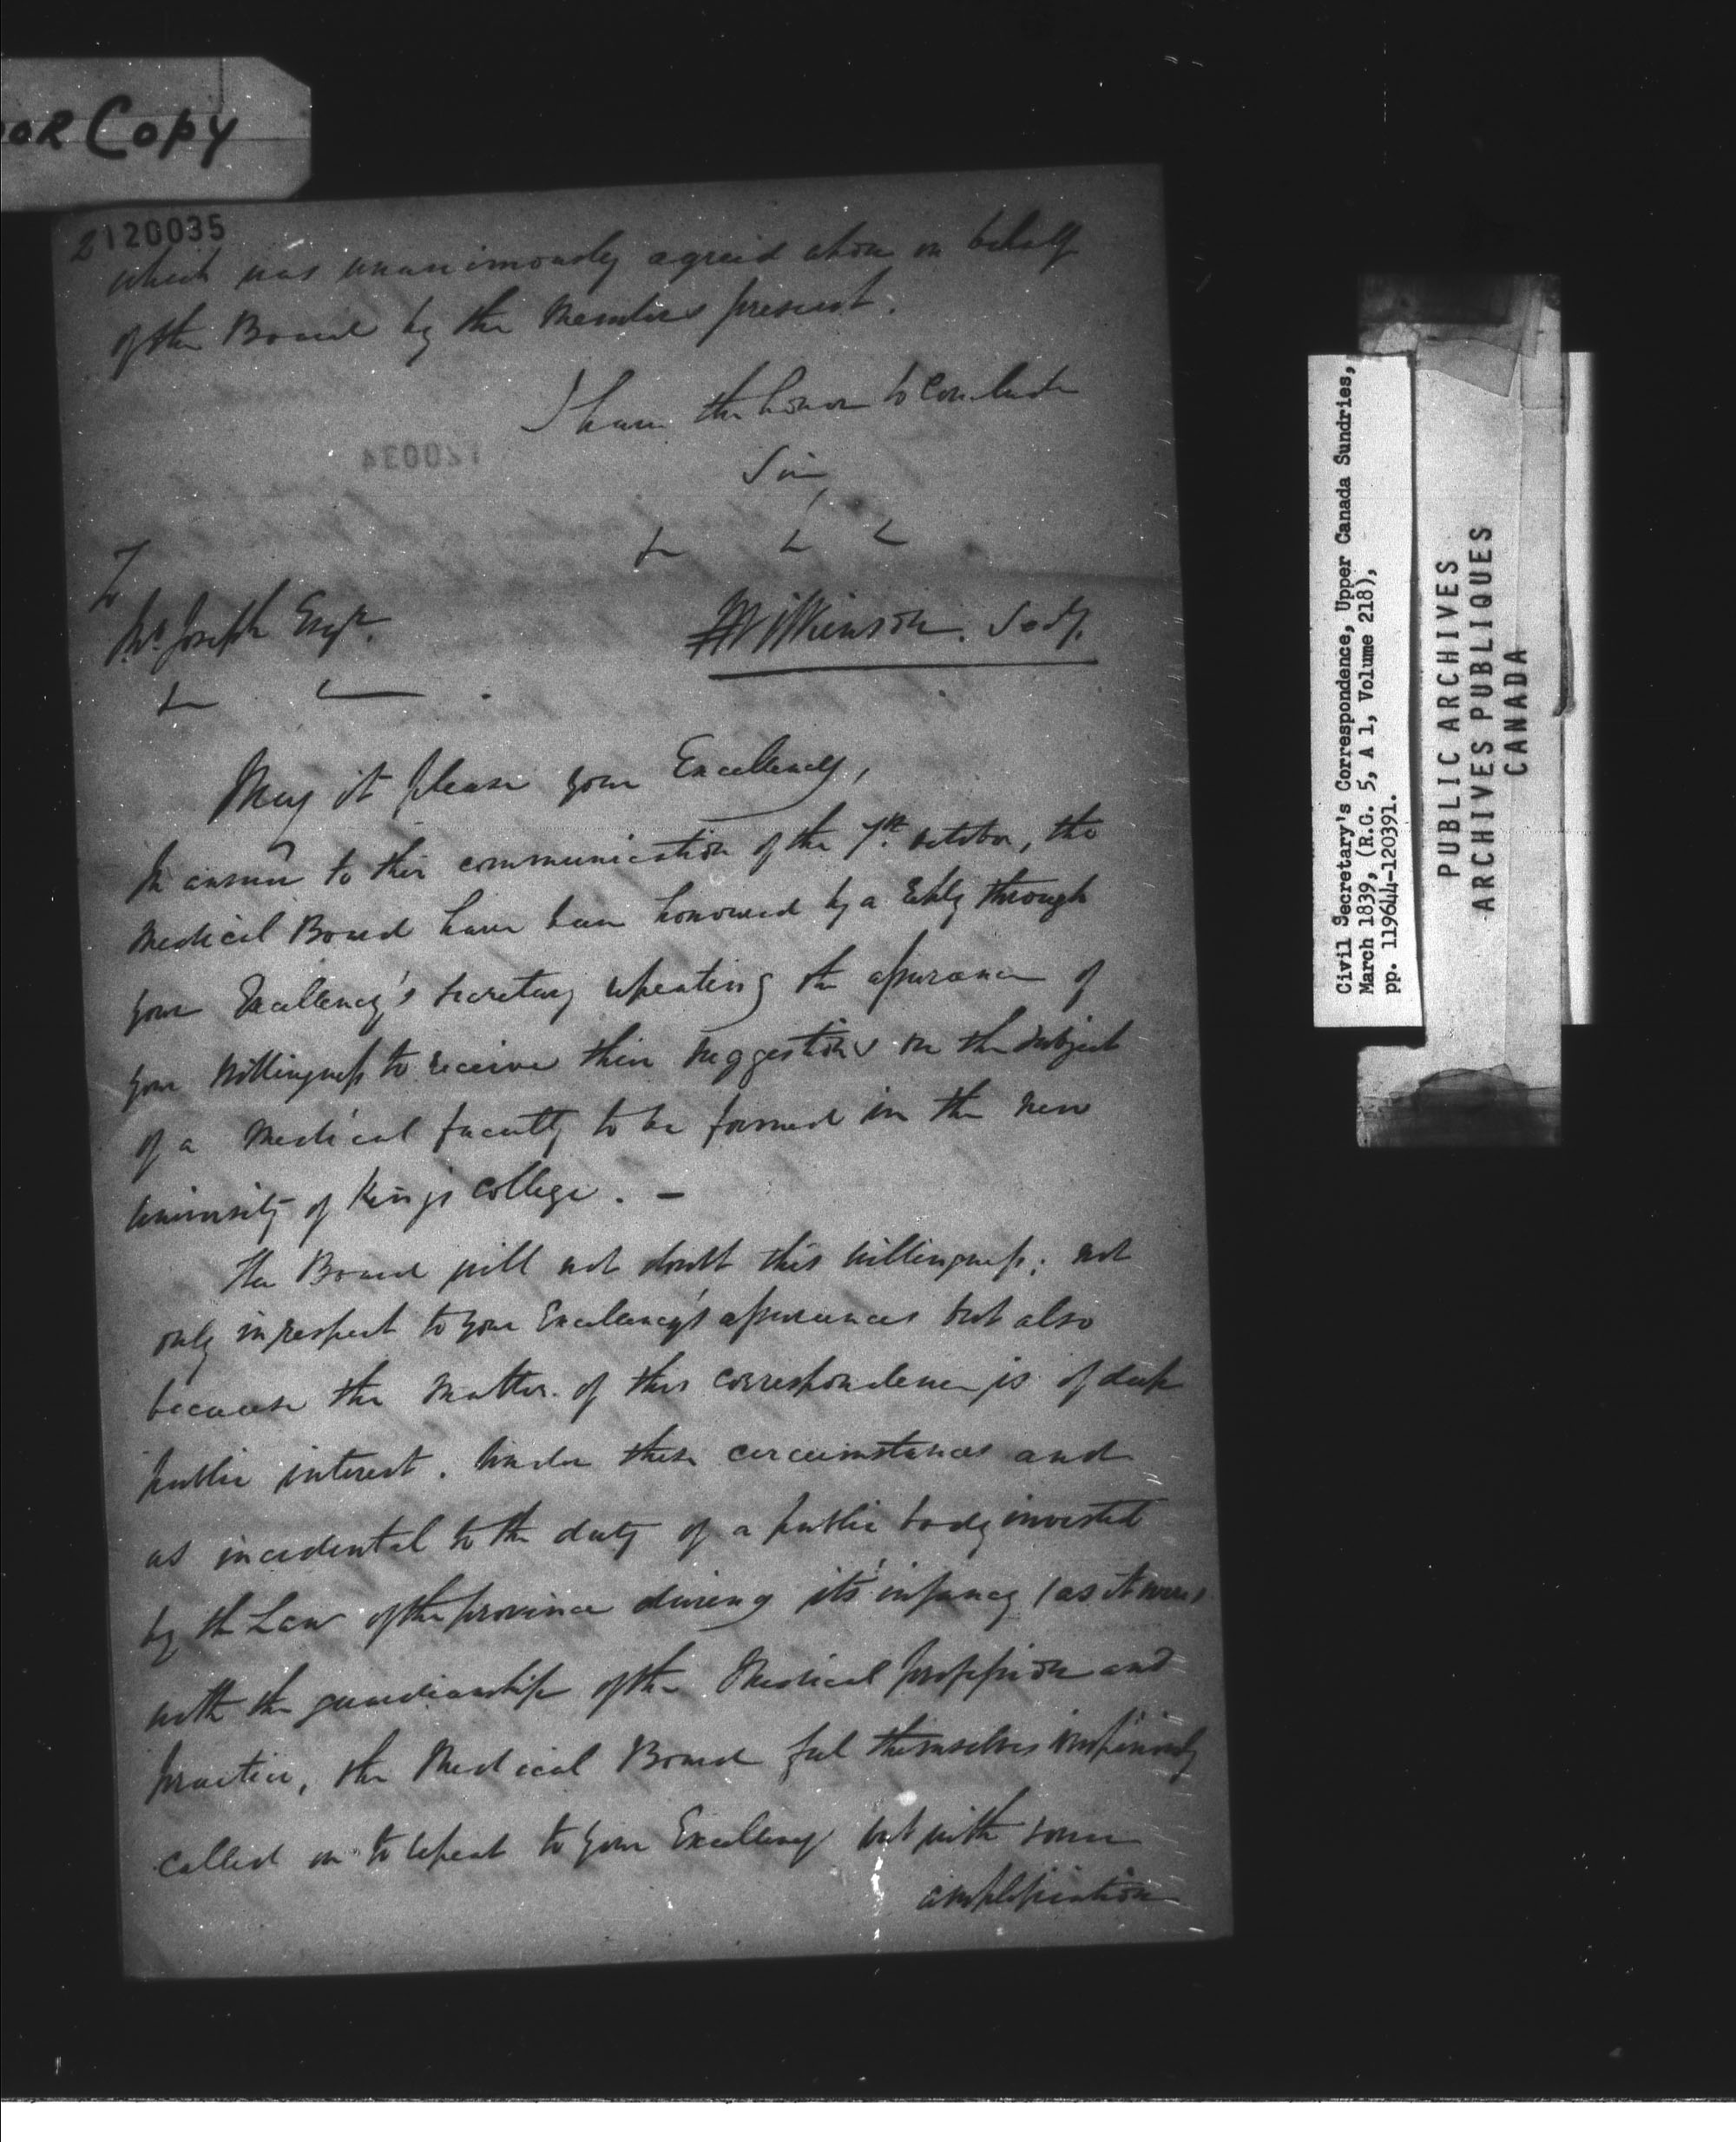 OR Copy
2 120035
which was unanimously agreed upon on behalf
of the Board by the Members present.
I have the honor to Conclude
Sir,
120034
To
Joseph Esqr.
Wilkinson. Secy.
May it please your Excellency,
In answer to their communication of the 7th. October, the
Medical Board have been honoured by a Reply through
your Excellency's Secretary repeating the assurance of
your willingness to receive their suggestions on the subject
of a Medical faculty to be formed in the new
University of King's College. —
The Board will not doubt this willingness; not
only in respect to your Excellency's assurances but also
because the matter of this correspondence is of deep
public interest. Under these circumstances and
as incidental to the duty of a public body invested
by the Law of the province during its' infancy (as it were)
with the guardianship of the Medical profession and
practice, the Medical Board feel themselves imperiously
called on to repeat to your Excellency but with some
amplification
Civil Secretary's Correspondence, Upper Canada Sundries,
March 1839, (R.G. 5, A 1, Volume 218),
pp. 119644-120391.
PUBLIC ARCHIVES
ARCHIVES PUBLIQUES
CANADA